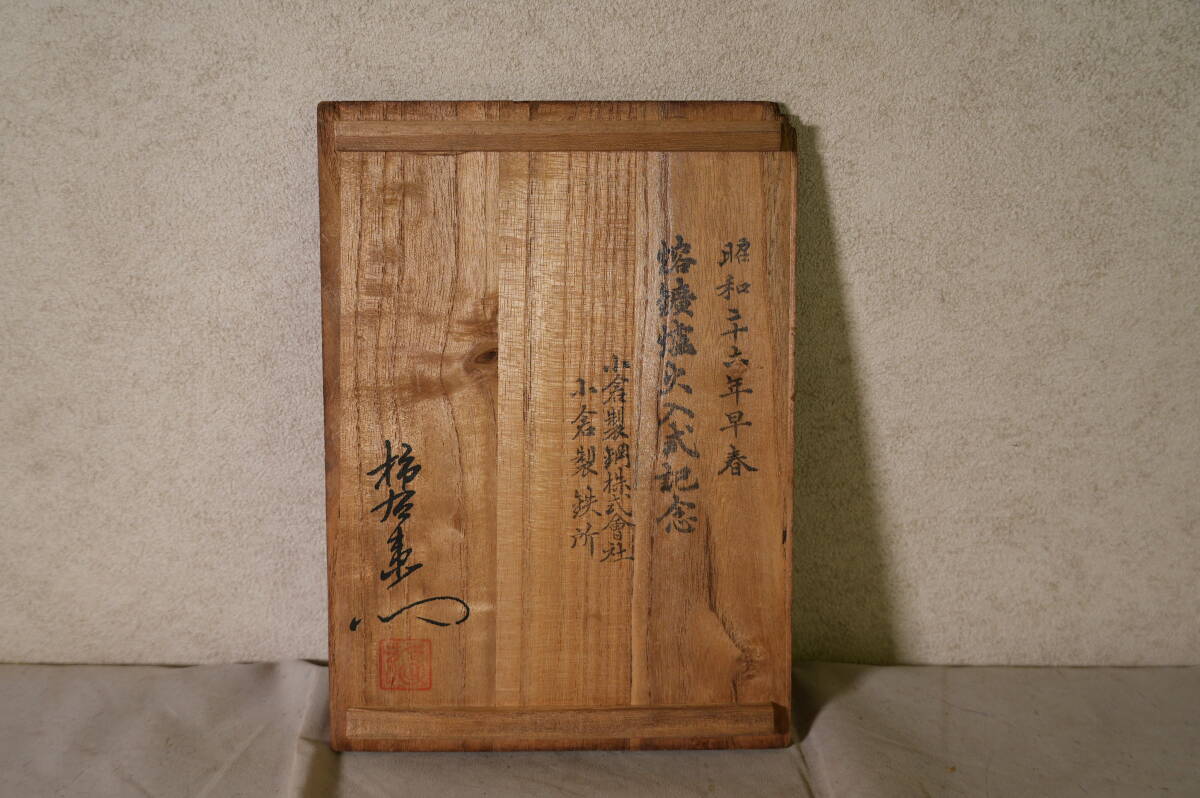 昭和二十六年早春
熔鑛爐火入式記念
小倉製鋼株式會社
小倉製鉄所
柿右衛門